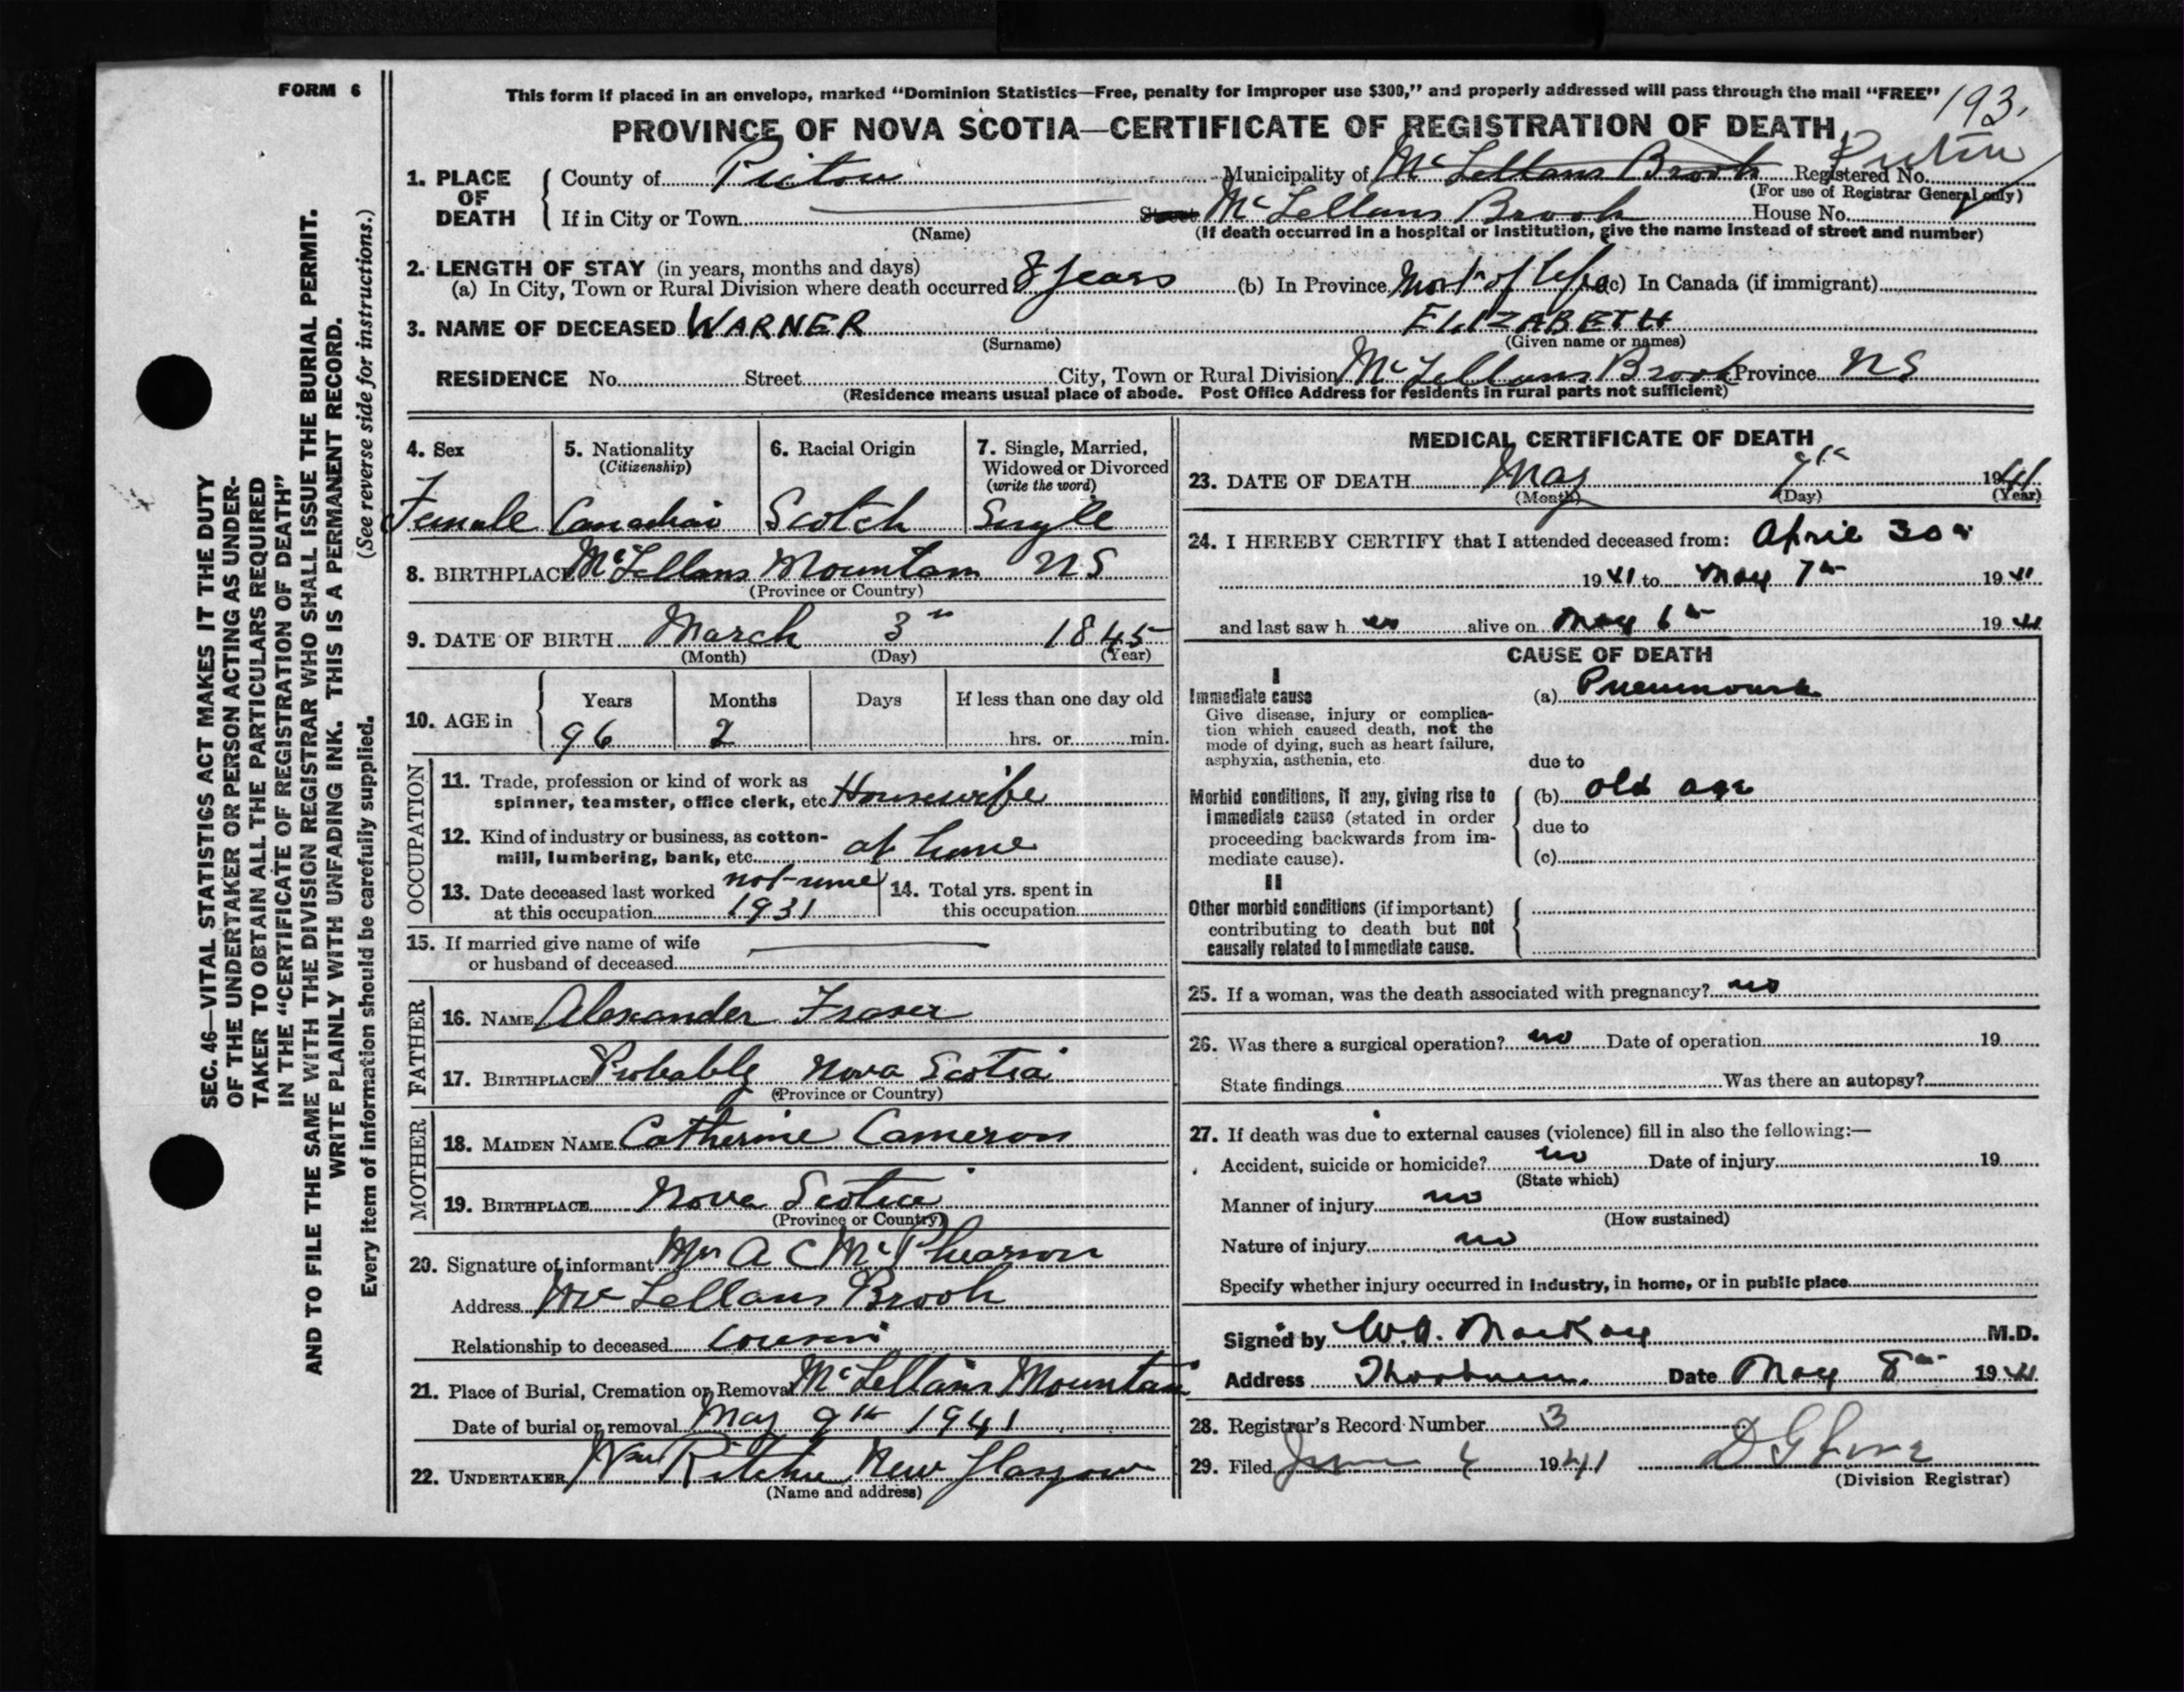 FORM 6
This form if placed in an envelope, marked “Dominion Statistics—Free, penalty for improper use $300,” and properly addressed will pass through the mail “FREE”
193.
PROVINCE OF NOVA SCOTIA—CERTIFICATE OF REGISTRATION OF DEATH
Pictou
1. PLACE OF DEATH
County of Pictou
Municipality of McLellans Brook Registered No.
(For use of Registrar General only)
If in City or Town
(Name)
Street McLellans Brook House No.
(If death occurred in a hospital or institution, give the name instead of street and number)
2. LENGTH OF STAY (in years, months and days)
(a) In City, Town or Rural Division where death occurred 8 years (b) In Province Most of life (c) In Canada (if immigrant)
3. NAME OF DECEASED WARNER ELIZABETH
(Surname) (Given name or names)
RESIDENCE No. Street City, Town or Rural Division McLellans Brook Province NS
(Residence means usual place of abode. Post Office Address for residents in rural parts not sufficient)
4. Sex
Female
5. Nationality
(Citizenship)
Canadian
6. Racial Origin
Scotch
7. Single, Married,
Widowed or Divorced
(write the word)
Single
8. BIRTHPLACE McLellans Mountain NS
(Province or Country)
9. DATE OF BIRTH March 3rd 1845
(Month) (Day) (Year)
10. AGE in
Years Months Days If less than one day old
96 2 hrs. or min.
OCCUPATION
11. Trade, profession or kind of work as
spinner, teamster, office clerk, etc. Housewife
12. Kind of industry or business, as cotton-
mill, lumbering, bank, etc. at home
13. Date deceased last worked not since
at this occupation 1931
14. Total yrs. spent in
this occupation
15. If married give name of wife
or husband of deceased
FATHER
16. NAME Alexander Fraser
17. BIRTHPLACE Probably Nova Scotia
(Province or Country)
MOTHER
18. MAIDEN NAME Catherine Cameron
19. BIRTHPLACE Nova Scotia
(Province or Country)
20. Signature of informant Mrs A C McPhearson
Address McLellans Brook
Relationship to deceased cousin
21. Place of Burial, Cremation or Removal McLellans Mountain
Date of burial or removal May 9th 1941
22. UNDERTAKER Wm Ritchie New Glasgow
(Name and address)
MEDICAL CERTIFICATE OF DEATH
23. DATE OF DEATH May 7th 1941
(Month) (Day) (Year)
24. I HEREBY CERTIFY that I attended deceased from: April 30th
1941 to May 7th 1941
and last saw her alive on May 6th 1941
CAUSE OF DEATH
I
Immediate cause
Give disease, injury or complica-
tion which caused death, not the
mode of dying, such as heart failure,
asphyxia, asthenia, etc.
(a) Pneumonia
due to
Morbid conditions, if any, giving rise to
immediate cause (stated in order
proceeding backwards from im-
mediate cause).
(b) old age
due to
(c)
II
Other morbid conditions (if important)
contributing to death but not
causally related to immediate cause.
25. If a woman, was the death associated with pregnancy? no
26. Was there a surgical operation? no Date of operation 19
State findings Was there an autopsy?
27. If death was due to external causes (violence) fill in also the following:—
Accident, suicide or homicide? no Date of injury 19
(State which)
Manner of injury no
(How sustained)
Nature of injury no
Specify whether injury occurred in industry, in home, or in public place
Signed by W.A. MacKay M.D.
Address Thorburn. Date May 8th 1941
28. Registrar's Record Number 3
29. Filed June 1941
(Division Registrar)
SEC. 46—VITAL STATISTICS ACT MAKES IT THE DUTY
OF THE UNDERTAKER OR PERSON ACTING AS UNDER-
TAKER TO OBTAIN ALL THE PARTICULARS REQUIRED
IN THE “CERTIFICATE OF REGISTRATION OF DEATH”
AND TO FILE THE SAME WITH THE DIVISION REGISTRAR WHO SHALL ISSUE THE BURIAL PERMIT.
WRITE PLAINLY WITH UNFADING INK. THIS IS A PERMANENT RECORD.
Every item of information should be carefully supplied. (See reverse side for instructions.)